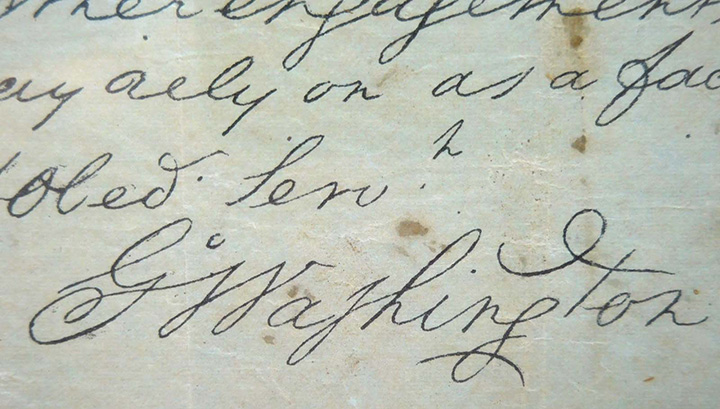 other engagement
may rely on as a fac
obed. Serv.t
G:Washington